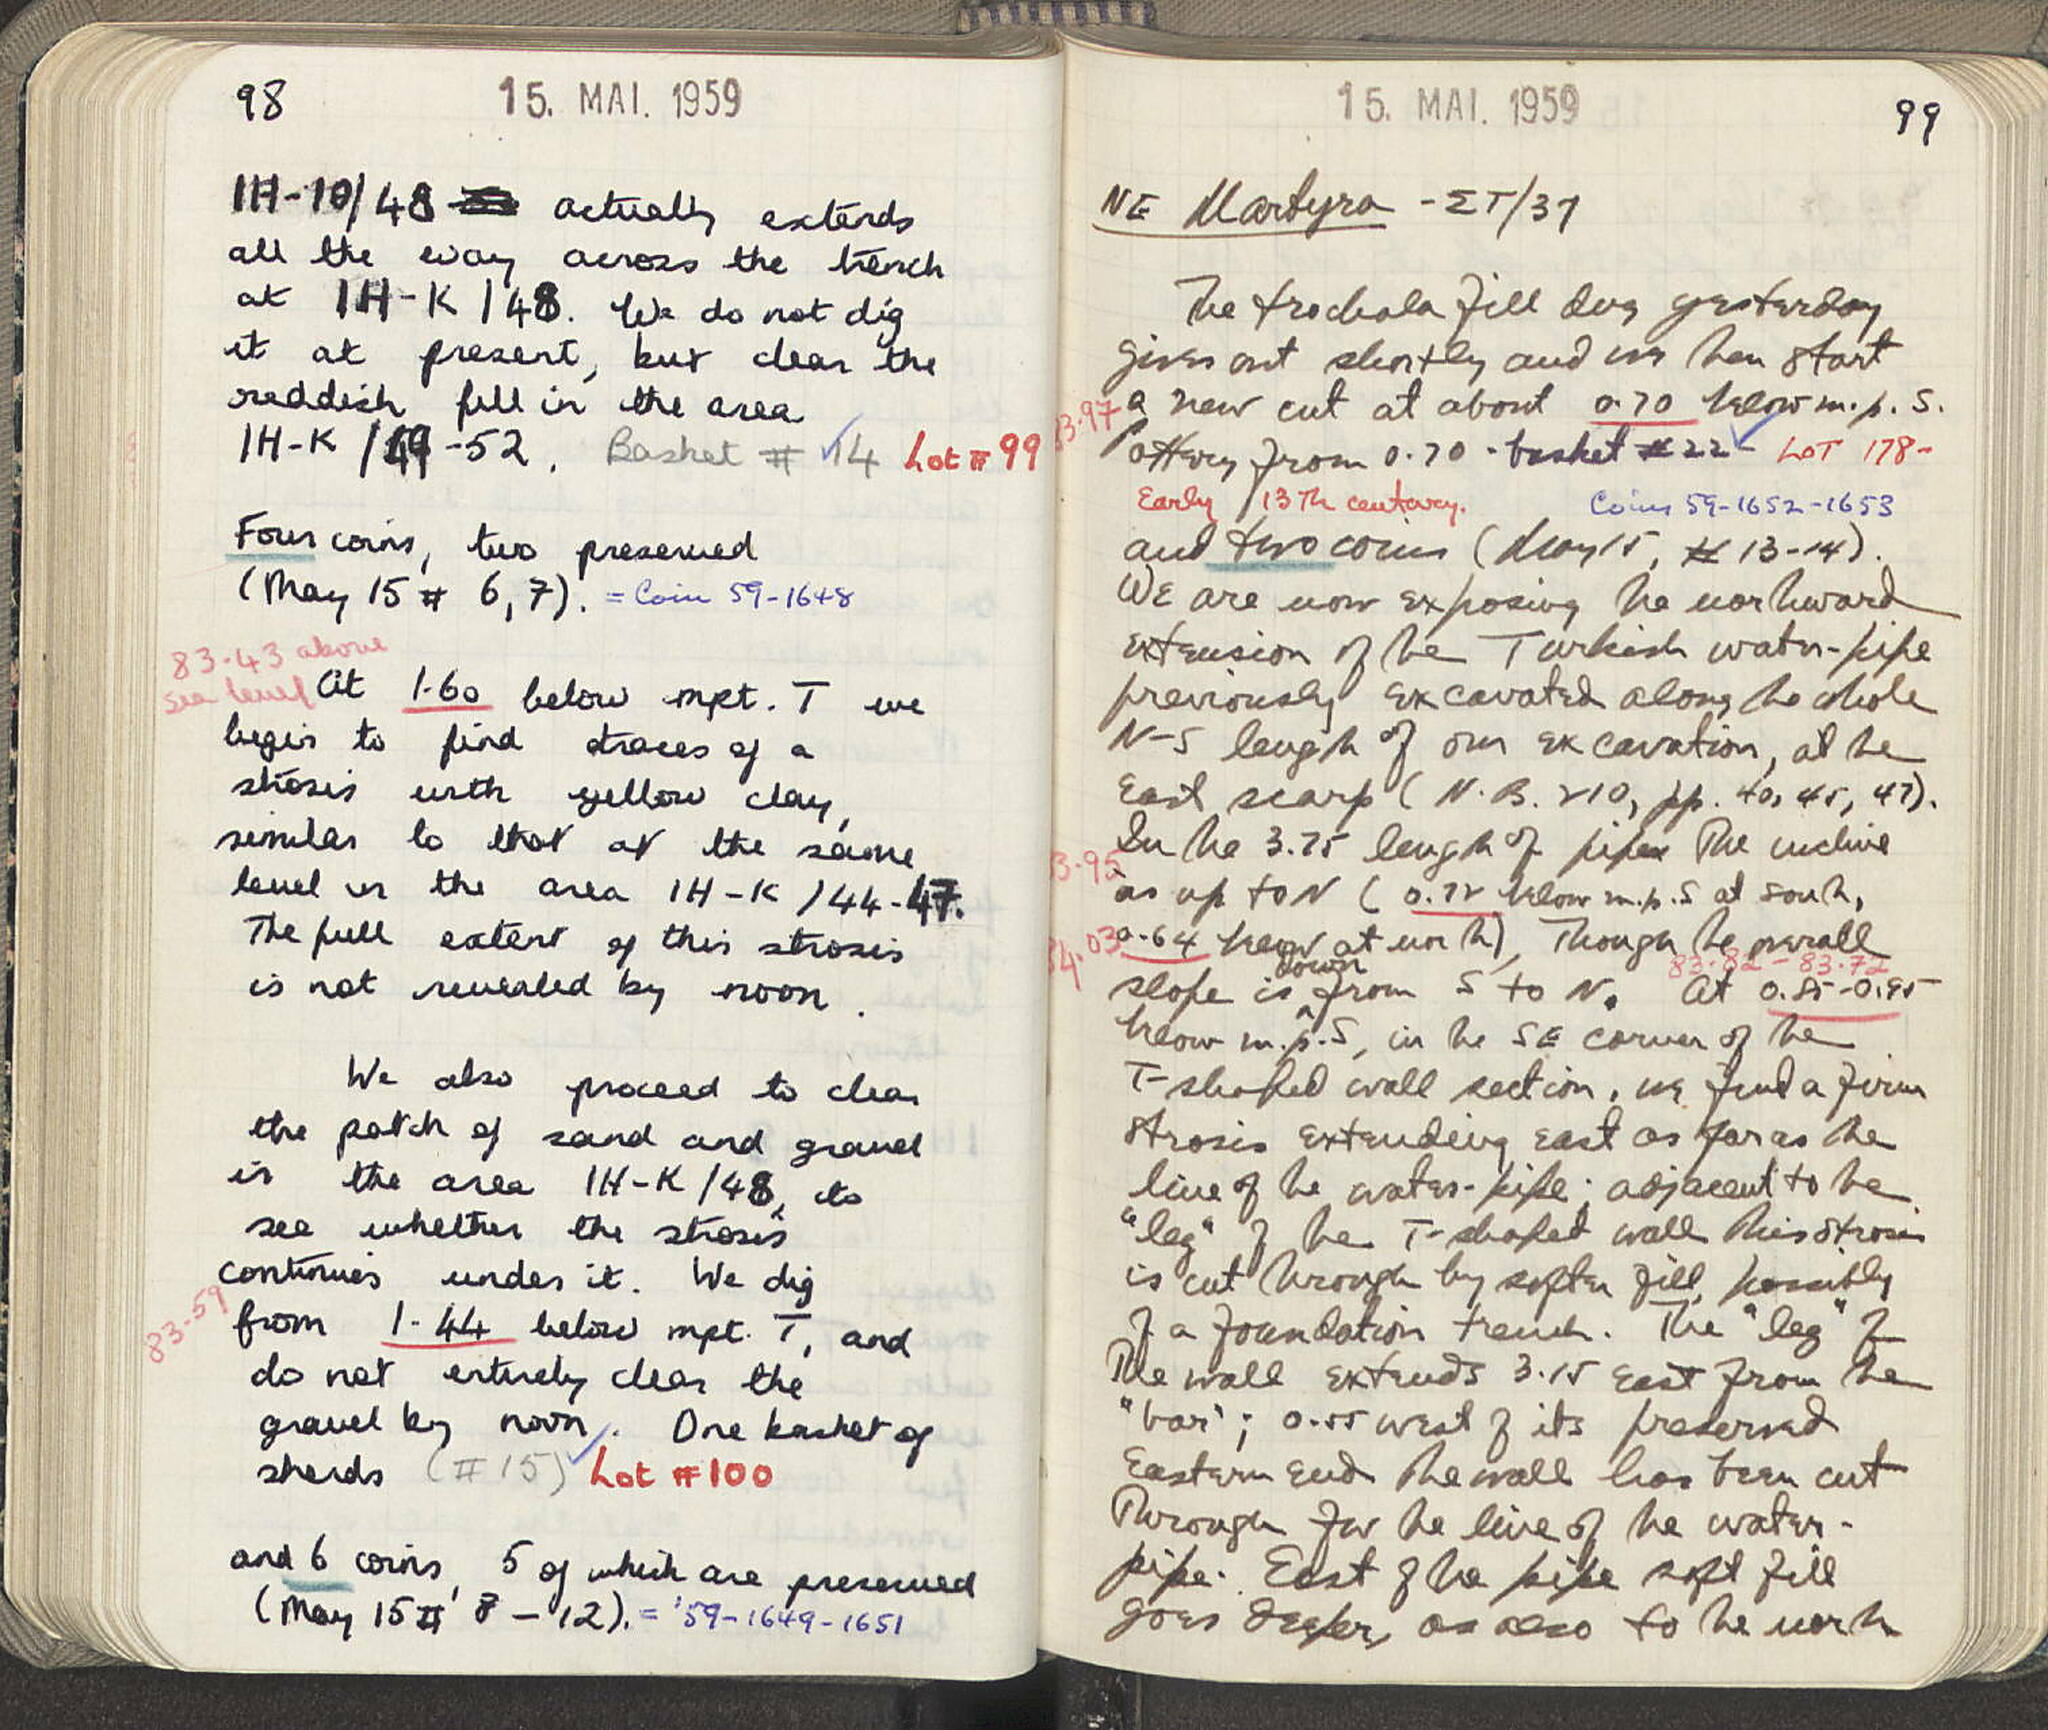 98
15. MAI. 1959
IH-10/48 actually extends
all the way across the trench
at IH-K/48. We do not dig
it at present, but clear the
reddish fill in the area
IH-K/49-52. Basket # 14 Lot # 99
Four coins, two preserved
(May 15 # 6, 7). = Coin 59-1648
83.43 above
sea level
At 1.60 below mpt. T we
begin to find traces of a
strosis with yellow clay,
similar to that at the same
level in the area IH-K/44-47.
The full extent of this strosis
is not revealed by noon.
We also proceed to clear
the patch of sand and gravel
in the area IH-K/48, to
see whether the strosis
continues under it. We dig
83.59
from 1.44 below mpt. T, and
do not entirely clear the
gravel by noon. One basket of
sherds (#15) Lot #100
and 6 coins, 5 of which are preserved
(May 15 # 8 - 12). = '59-1649-1651
15. MAI. 1959
99
NE Martyra - ΣT/37
The trochala fill dug yesterday
gives out shortly and we then start
83.97
a new cut at about 0.70 below m.p. S.
Pottery from 0.70 - basket # 22 - LOT 178-
Early 13Th century. Coins 59-1652-1653
and two coins (May 15, # 13-14).
We are now exposing the northward
extension of the Turkish water-pipe
previously excavated along the whole
N-S length of our excavation, at the
East scarp (N.B. 210, pp. 40, 45, 47).
In the 3.75 length of pipe the incline
83.95
is up to N (0.72 below m.p. S at south,
84.03
0.64 below at north), Though the overall
83.82 - 83.72
slope is down from S to N. At 0.85-0.95
below m.p. S, in the SE corner of the
T-shaped wall section, we find a firm
strosis extending east as far as the
line of the water-pipe; adjacent to the
"leg" of the T-shaped wall this strosis
is cut through by softer fill, possibly
of a foundation trench. The "leg" of
the wall extends 3.15 east from the
"bar"; 0.55 west of its preserved
Eastern end the wall has been cut
Through for the line of the water-
pipe. East of the pipe soft fill
goes deeper, as also to the north